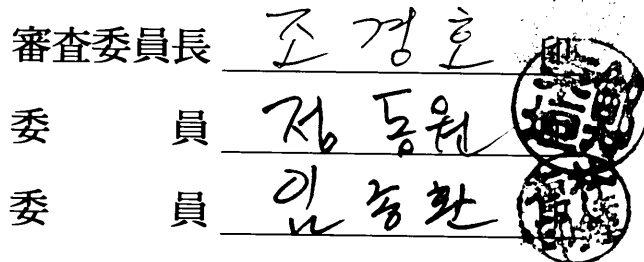 審査委員長 조경호
委員 정동원
委員 임승환